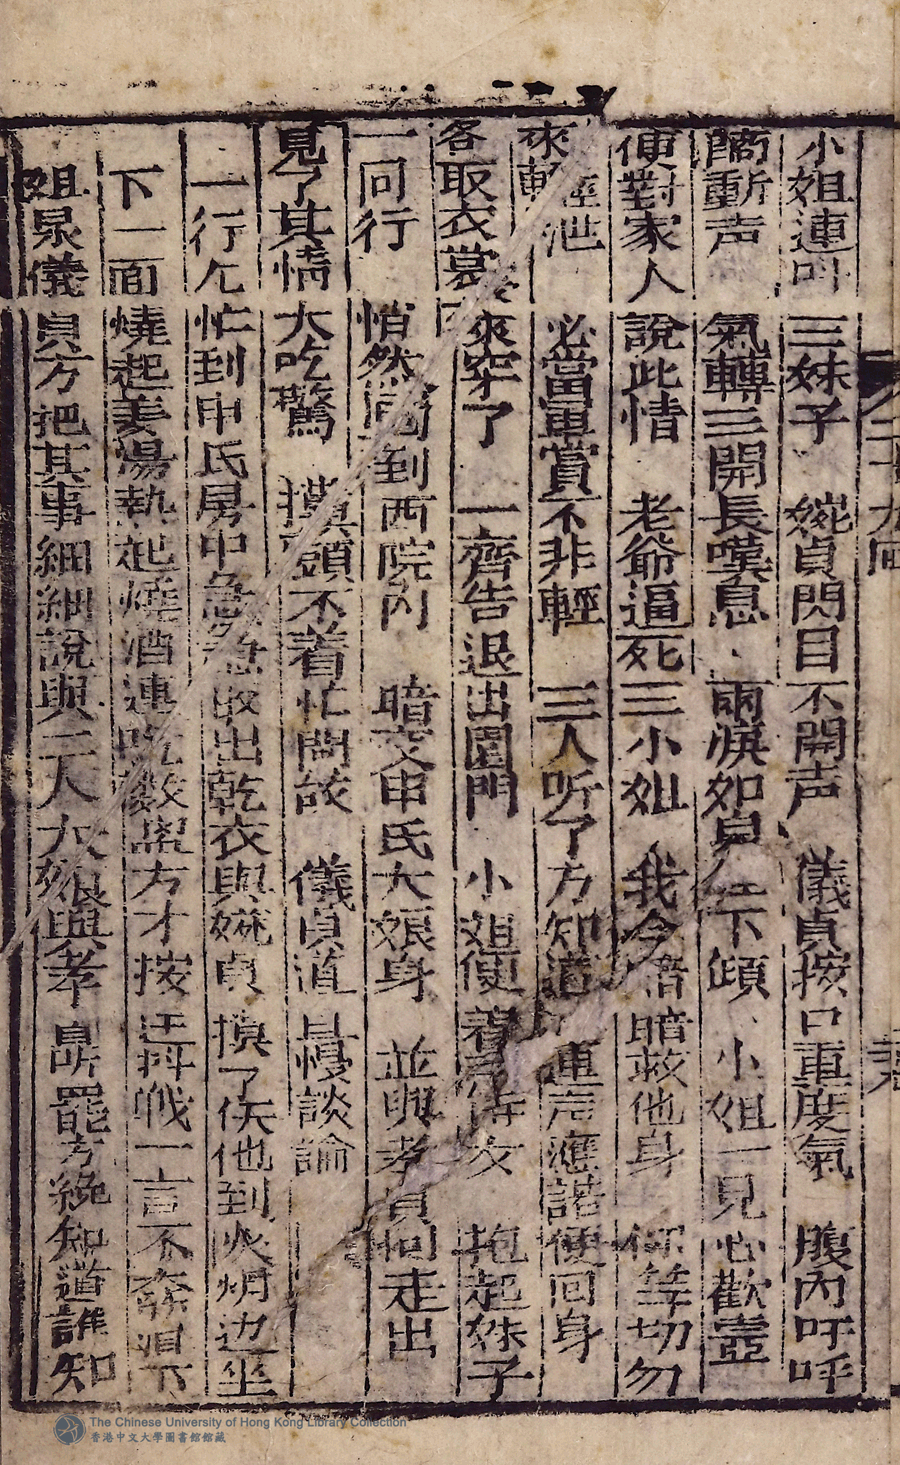 小姐連叫三妹子　婉貞閃目不開声　儀貞按口重度氣　腹內吁呼
蘭動声　氣轉三開長嘆息　兩淚如泉上下傾　小姐一見心歡喜
便對家人說此情　老爺逼死三小姐　我今悟暗救他身　你等切勿
來輕泄　必當重賞不非輕　三人听了方知道　連声應諾便回身
各取衣裳來穿了　一齊告退出園門　小姐便着侍女　抱起妹子
一同行　悄然同到西院內　暗交申氏大娘身　並與孝貞同走出
見了其情大吃驚　摸頭不着忙問故　儀貞道且慢談論
一行人忙到申氏房中急急取出乾衣與婉貞換了伕他到火炉边坐
下一面燒起姜湯熱起燒酒連吃數盃方才按定抖戰一言不發淚下
姐泉儀貞方把其事細細說與二人大娘與孝貞听罷方纔知道誰知
二十九回
The Chinese University of Hong Kong Library Collection
香港中文大學圖書館館藏